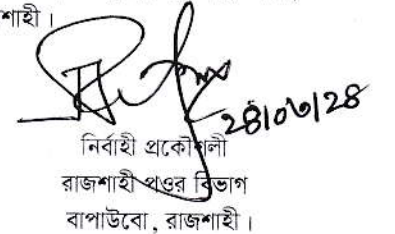 শাহী।
২৪/০৬/২৪
নির্বাহী প্রকৌশলী
রাজশাহী পওর বিভাগ
বাপাউবো, রাজশাহী।